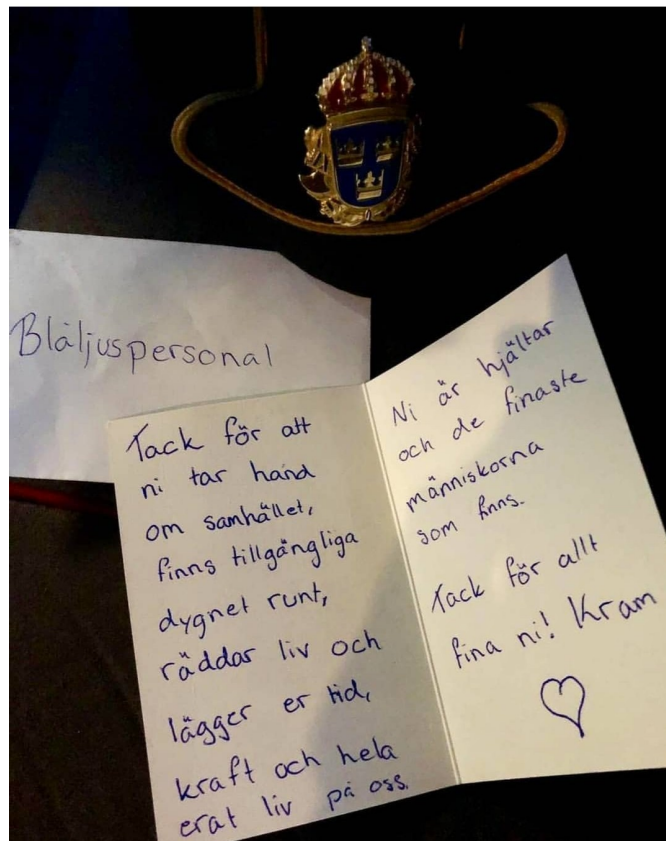 Blåljuspersonal
Tack för att
ni tar hand
om samhället,
finns tillgängliga
dygnet runt,
räddar liv och
lägger er tid,
kraft och hela
erat liv på oss.
Ni är hjältar
och de finaste
människorna
som finns.
Tack för allt
fina ni! Kram